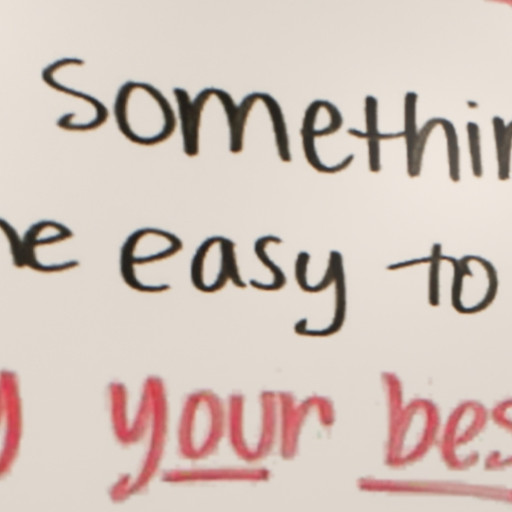 somethin
he easy to
y your bes